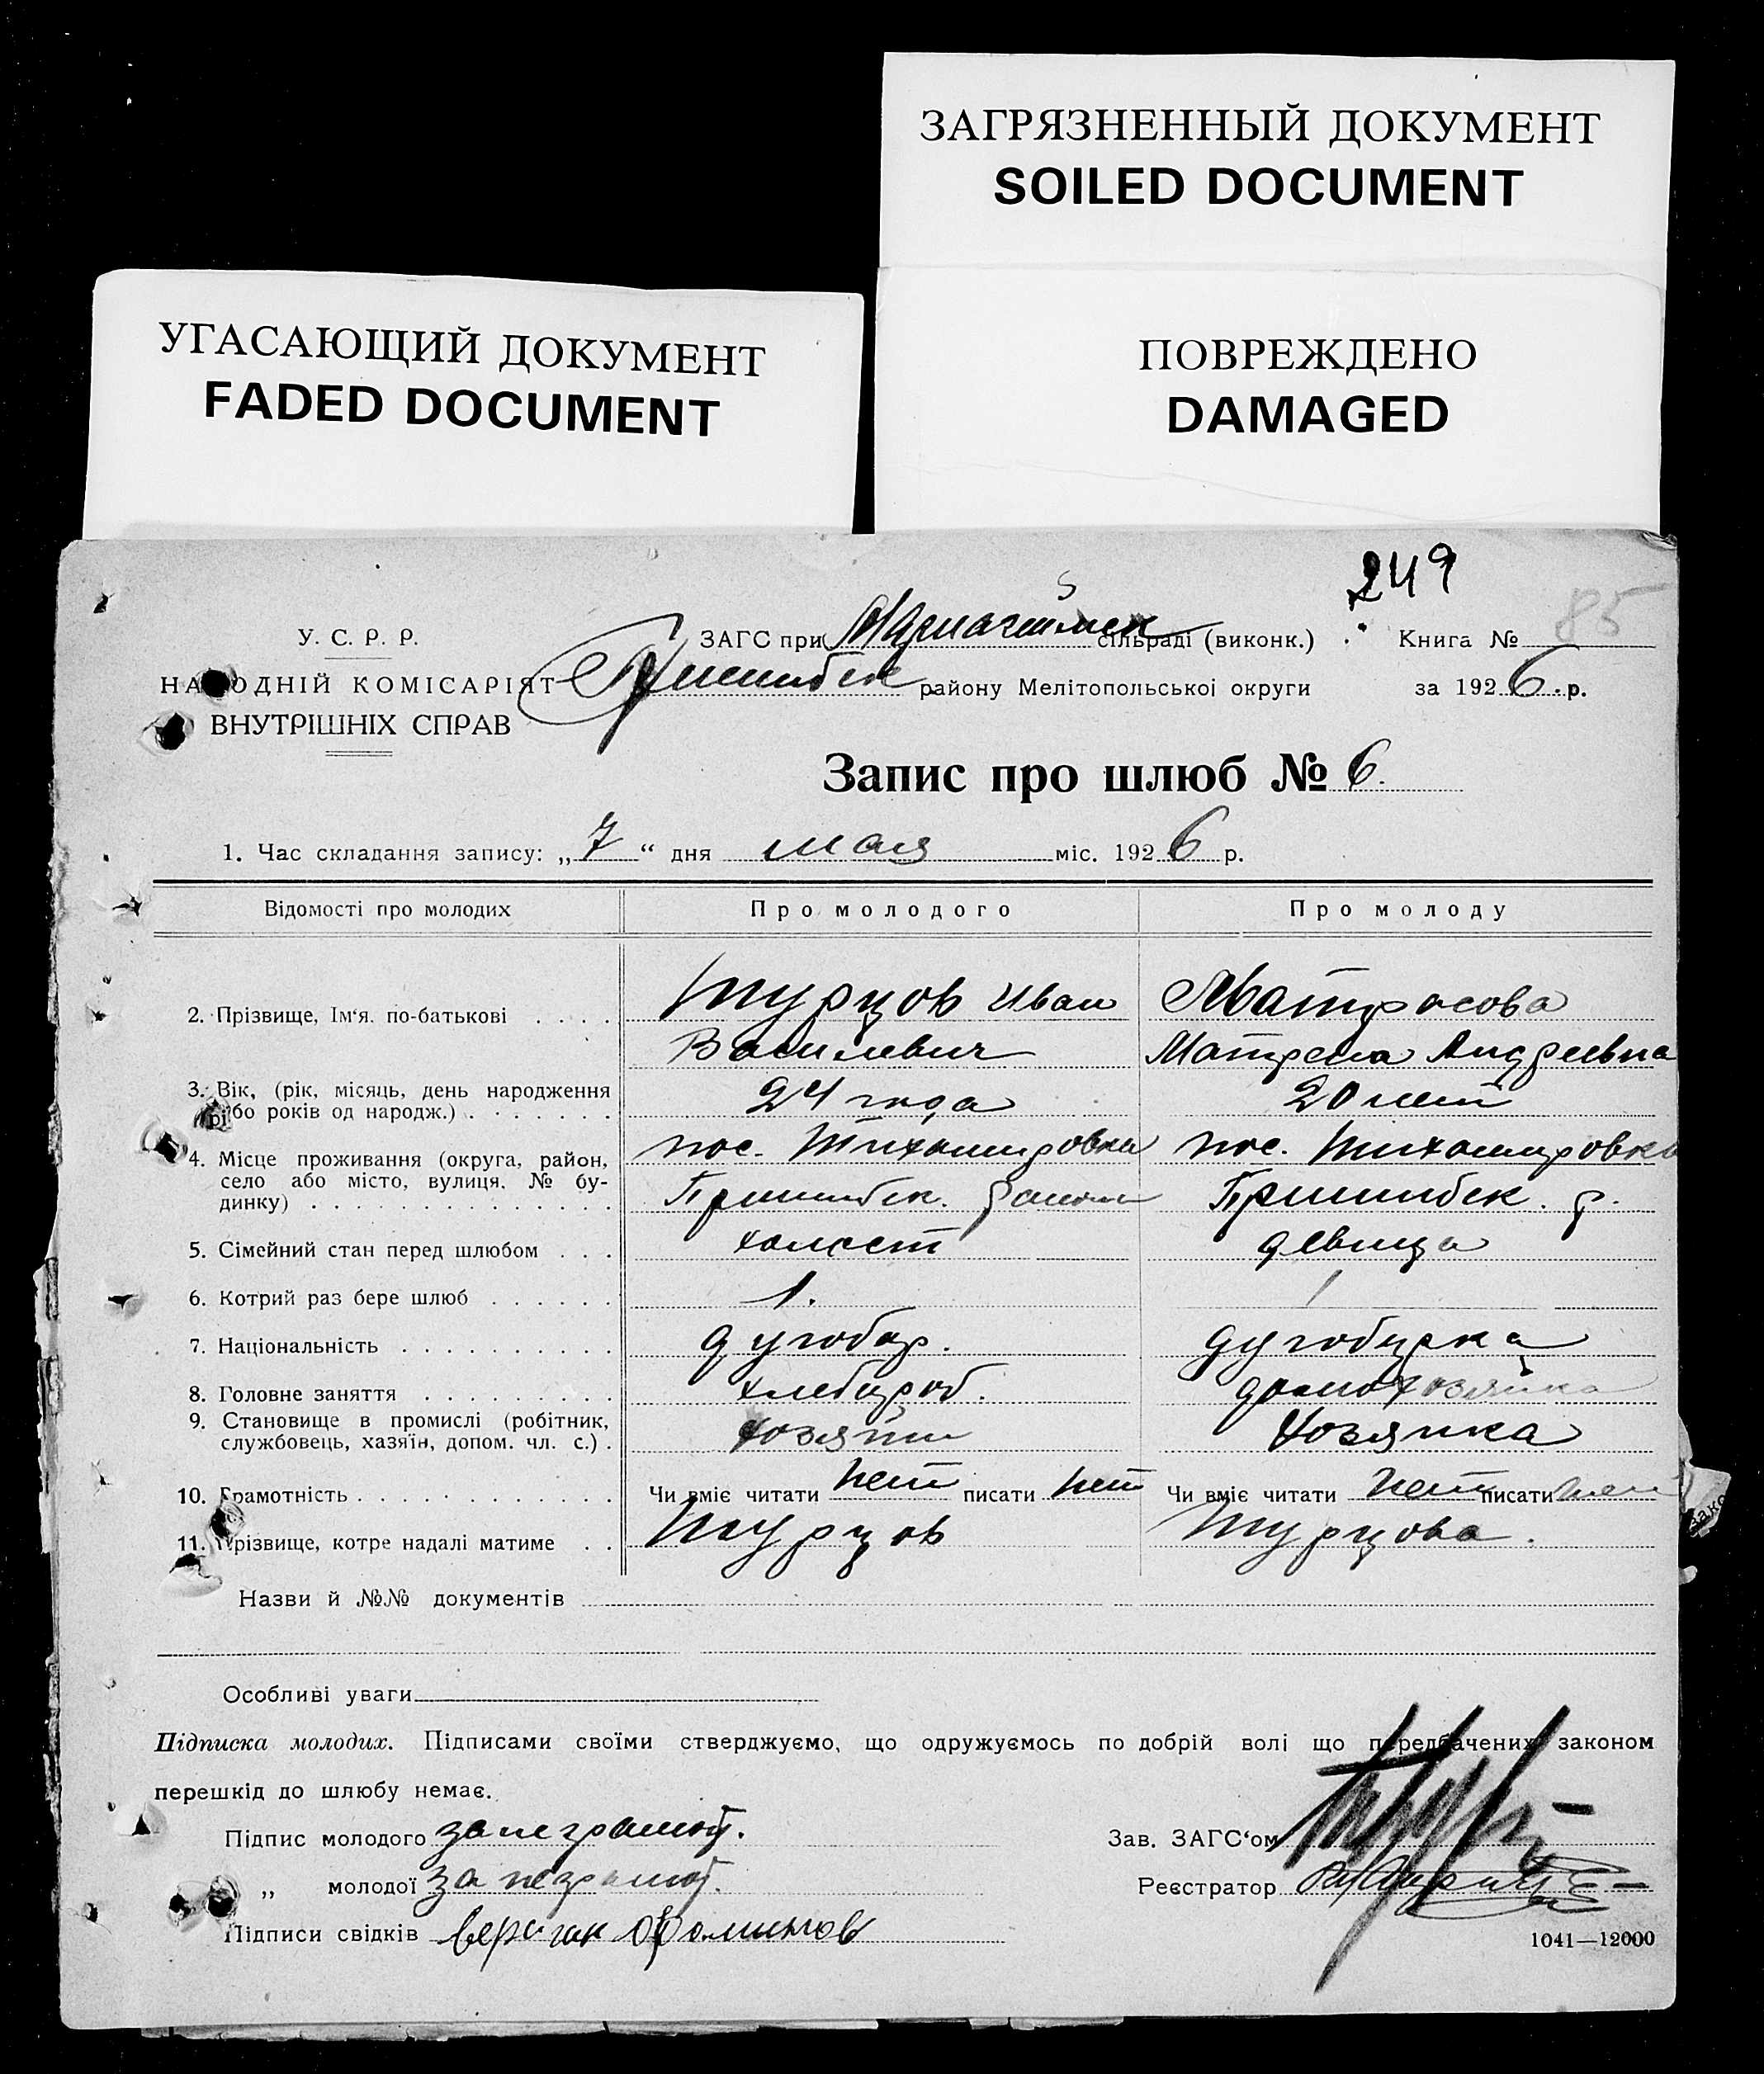 ЗАГРЯЗНЕННЫЙ ДОКУМЕНТ
SOILED DOCUMENT
УГАСАЮЩИЙ ДОКУМЕНТ
FADED DOCUMENT
ПОВРЕЖДЕНО
DAMAGED
249
У. С. Р. Р.
ЗАГС при сільраді (виконк.) Книга № 85
НАРОДНІЙ КОМІСАРІЯТ
Пришибск району Мелітопольської округи за 1926 р.
ВНУТРІШНІХ СПРАВ
Запис про шлюб № 6.
1. Час складання запису: „7“ дня мая міс. 1926 р.
Відомості про молодих Про молодого Про молоду
2. Прізвище, Ім‘я. по-батькові Шурцов Иван Матросова
Василевич Матрена Андреевна
3. Вік, (рік, місяць, день народження 24 года 20 лет
або років од народж.)
4. Місце проживання (округа, район, пос. Тихомировка пос. Тихомировка
село або місто, вулиця. № бу- Пришибск. района Пришибск. р.
динку)
5. Сімейний стан перед шлюбом холост девица
6. Котрий раз бере шлюб 1. 1
7. Національність духобор. духоборка
8. Головне заняття хлебороб. домохозяйка
9. Становище в промислі (робітник, хозяин хозяйка
службовець, хазяїн, допом. чл. с.)
10. Грамотність Чи вміє читати нет писати нет Чи вміє читати нет писати нет
11. Прізвище, котре надалі матиме Шурцов Шурцова.
Назви й №№ документів
Особливі уваги
Підписка молодих. Підписами своїми стверджуємо, що одружуємось по добрій волі що передбачених законом
перешкід до шлюбу немає.
Підпис молодого за неграмот. Зав. ЗАГС‘ом
„ молодої за неграмот. Реєстратор
Підписи свідків
1041—12000